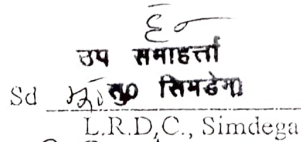 उप समाहर्त्ता
Sd भू० सु० सिमडेगा
L.R.D.C., Simdega